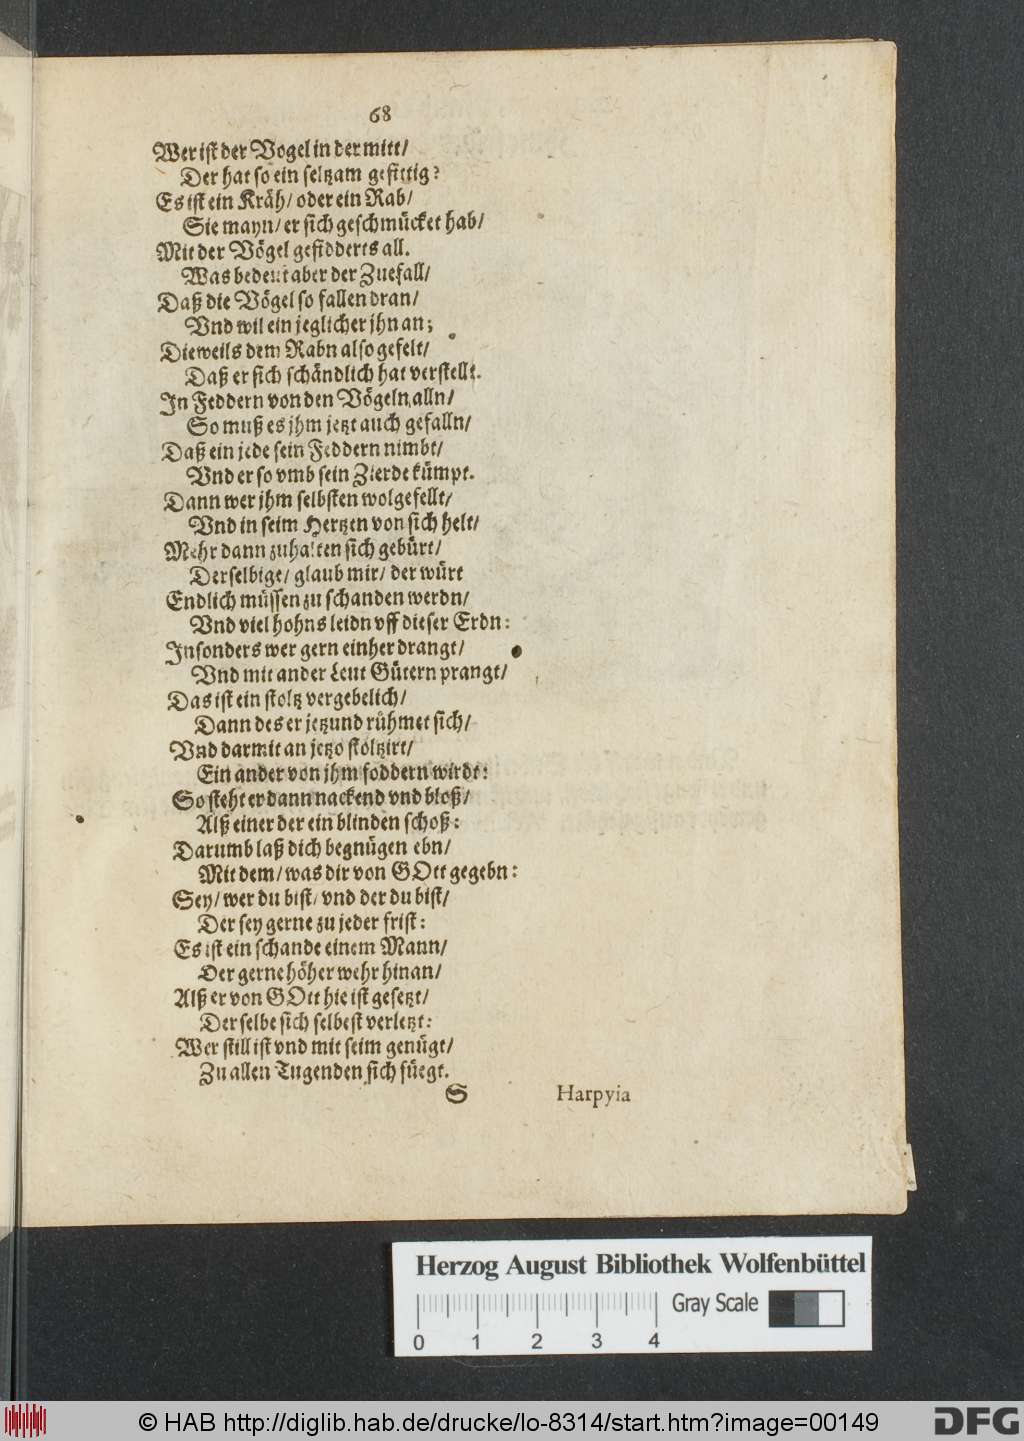 68
Wer ist der Vogel in der mitt/
Der hat so ein seltzam gefittig?
Es ist ein Kräh/ oder ein Rab/
Sie mayn/ er sich geschmücket hab/
Mit der Vögel gefidderts all.
Was bedeut aber der Zuefall/
Daß die Vögel so fallen dran/
Vnd wil ein jeglicher jhn an;
Dieweils dem Rabn also gefelt/
Daß er sich schändlich hat verstellt.
In Feddern von den Vögeln alln/
So muß es jhm jetzt auch gefalln/
Daß ein jede sein Feddern nimbt/
Vnd er so vmb sein Zierde kümpt.
Dann wer jhm selbsten wolgefellt/
Vnd in seim Hertzen von sich helt/
Mehr dann zuhalten sich gebürt/
Derselbige/ glaub mir/ der würt
Endlich müssen zu schanden werdn/
Vnd viel hohns leidn vff dieser Erdn:
Insonders wer gern einher drangt/
Vnd mit ander Leut Gütern prangt/
Das ist ein stoltz vergebelich/
Dann des er jetzund rühmet sich/
Vnd darmit an jetzo stoltzirt/
Ein ander von jhm foddern wirdt:
So steht er dann nackend vnd bloß/
Alß einer der ein blinden schoß:
Darumb laß dich begnügen ebn/
Mit dem/ was dir von GOtt gegebn:
Sey/ wer du bist/ vnd der du bist/
Der sey gerne zu jeder frist:
Es ist ein schande einem Mann/
Der gerne höher wehr hinan/
Alß er von GOtt hie ist gesetzt/
Derselbe sich selbest verletzt:
Wer still ist vnd mit seim genügt/
Zu allen Tugenden sich füegt.
S Harpyia
Herzog August Bibliothek Wolfenbüttel
Gray Scale
0 1 2 3 4
© HAB http://diglib.hab.de/drucke/lo-8314/start.htm?image=00149
DFG